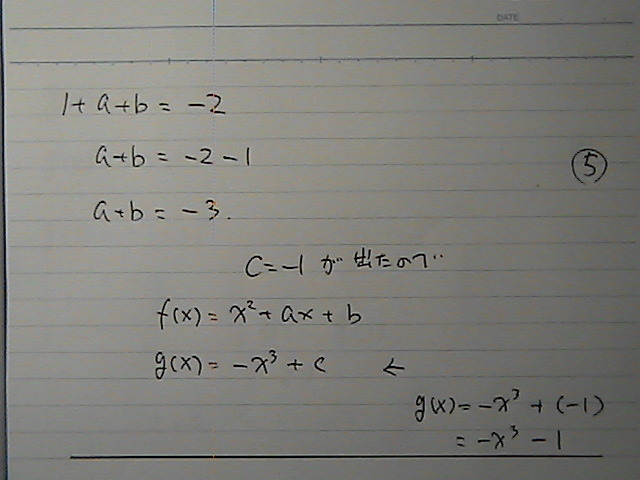 DATE
1 + a + b = -2
a + b = -2 - 1
⑤
a + b = -3.
C = -1 が 出たので
f(x) = x² + ax + b
g(x) = -x³ + c ←
g(x) = -x³ + (-1)
= -x³ - 1